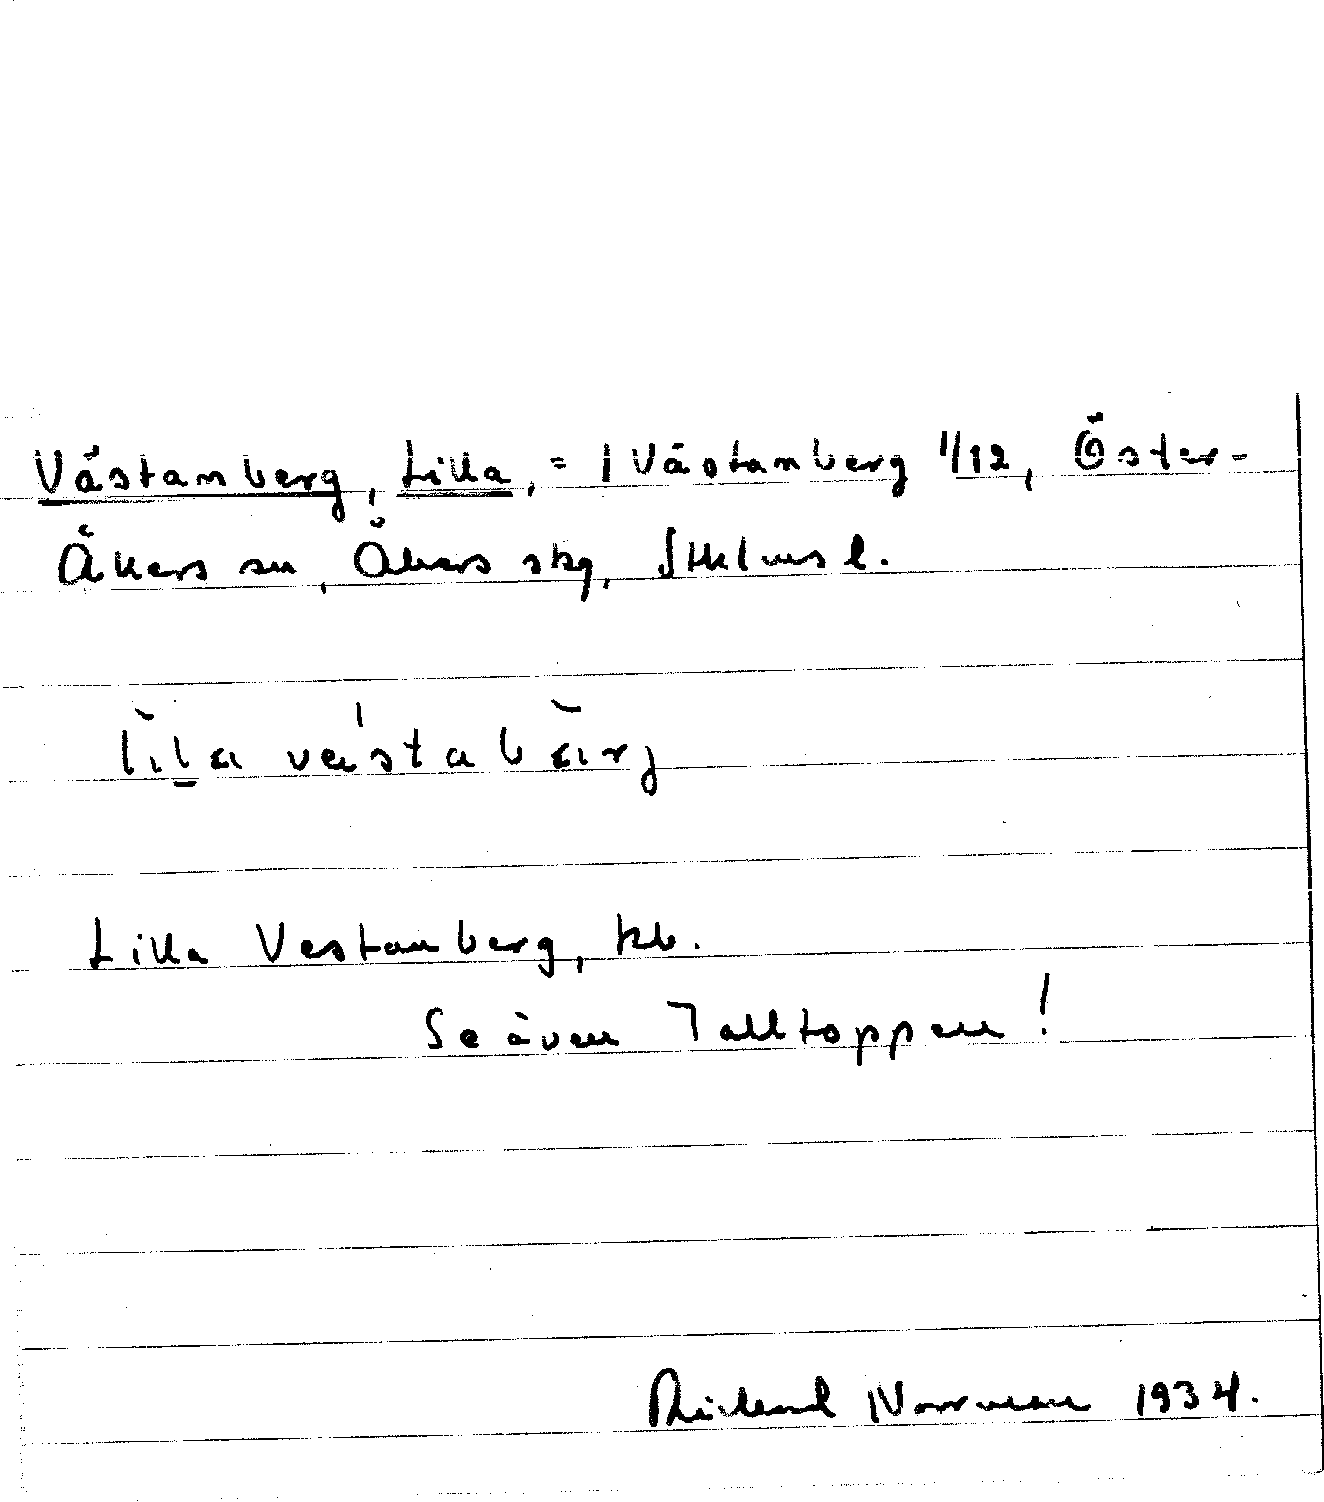 Västanberg, Lilla, = 1 Västanberg 1/12, Öster-
Åkers sn, Åkers skg, Sthlms l.
lìl̲a väˈstabä̀rj
Lilla Vestanberg, kb.
Se även Talltoppen!
Rickard Norrman 1934.